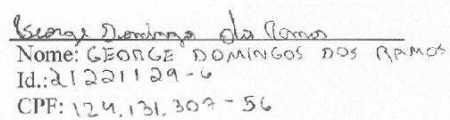 George Domingos dos Ramos
Nome: GEORGE DOMINGOS DOS RAMOS
Id.: 21221129-6
CPF: 124.131.307-56